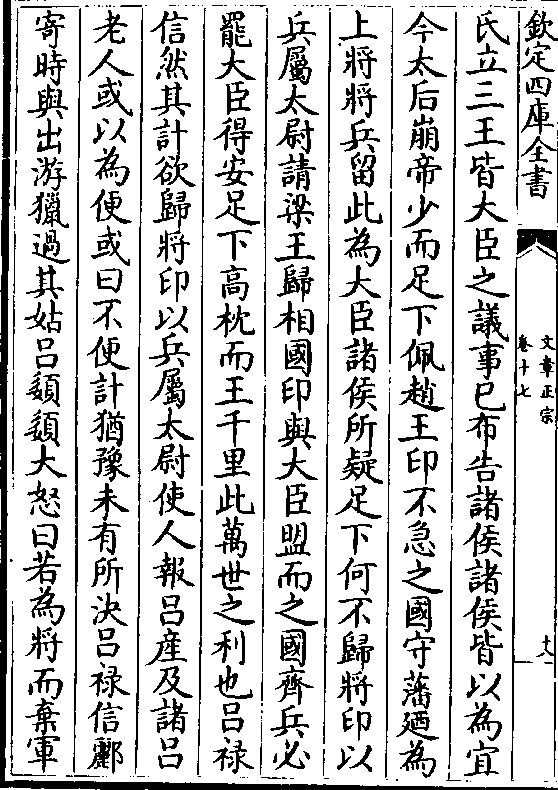 欽定四庫全書
文章正宗
卷十七
十八
氏立三王皆大臣之議事已布告諸侯諸侯皆以為宜
今太后崩帝少而足下佩趙王印不急之國守藩廼為
上將將兵留此為大臣諸侯所疑足下何不歸將印以
兵屬太尉請梁王歸相國印與大臣盟而之國齊兵必
罷大臣得安足下高枕而王千里此萬世之利也吕禄
信然其計欲歸將印以兵屬太尉使人報吕産及諸吕
老人或以為便或曰不便計猶豫未有所決吕禄信酈
寄時與出游獵過其姑吕嬃嬃大怒曰若為將而棄軍